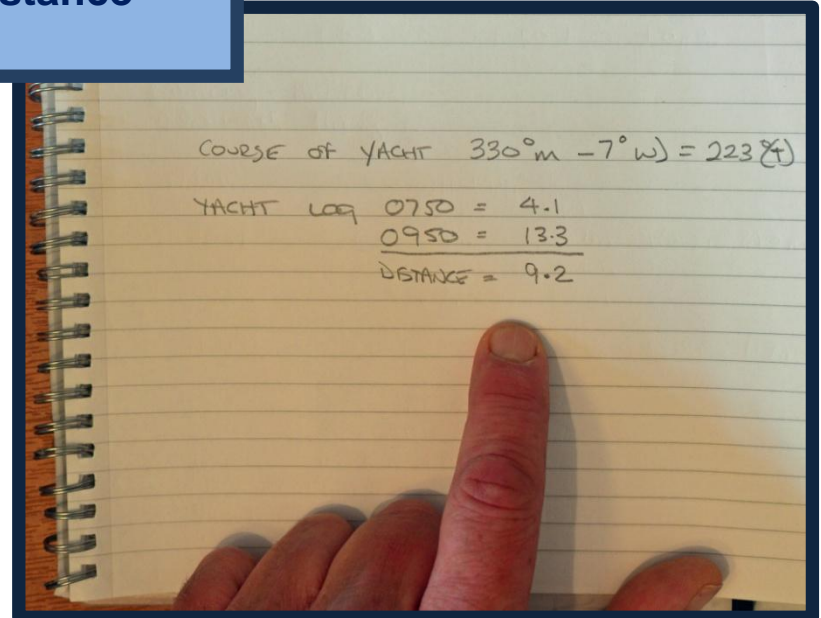 stance
COURSE OF YACHT 330°m -7°W) = 223°(t)
YACHT LOG 0750 = 4.1
0950 = 13.3
DISTANCE = 9.2